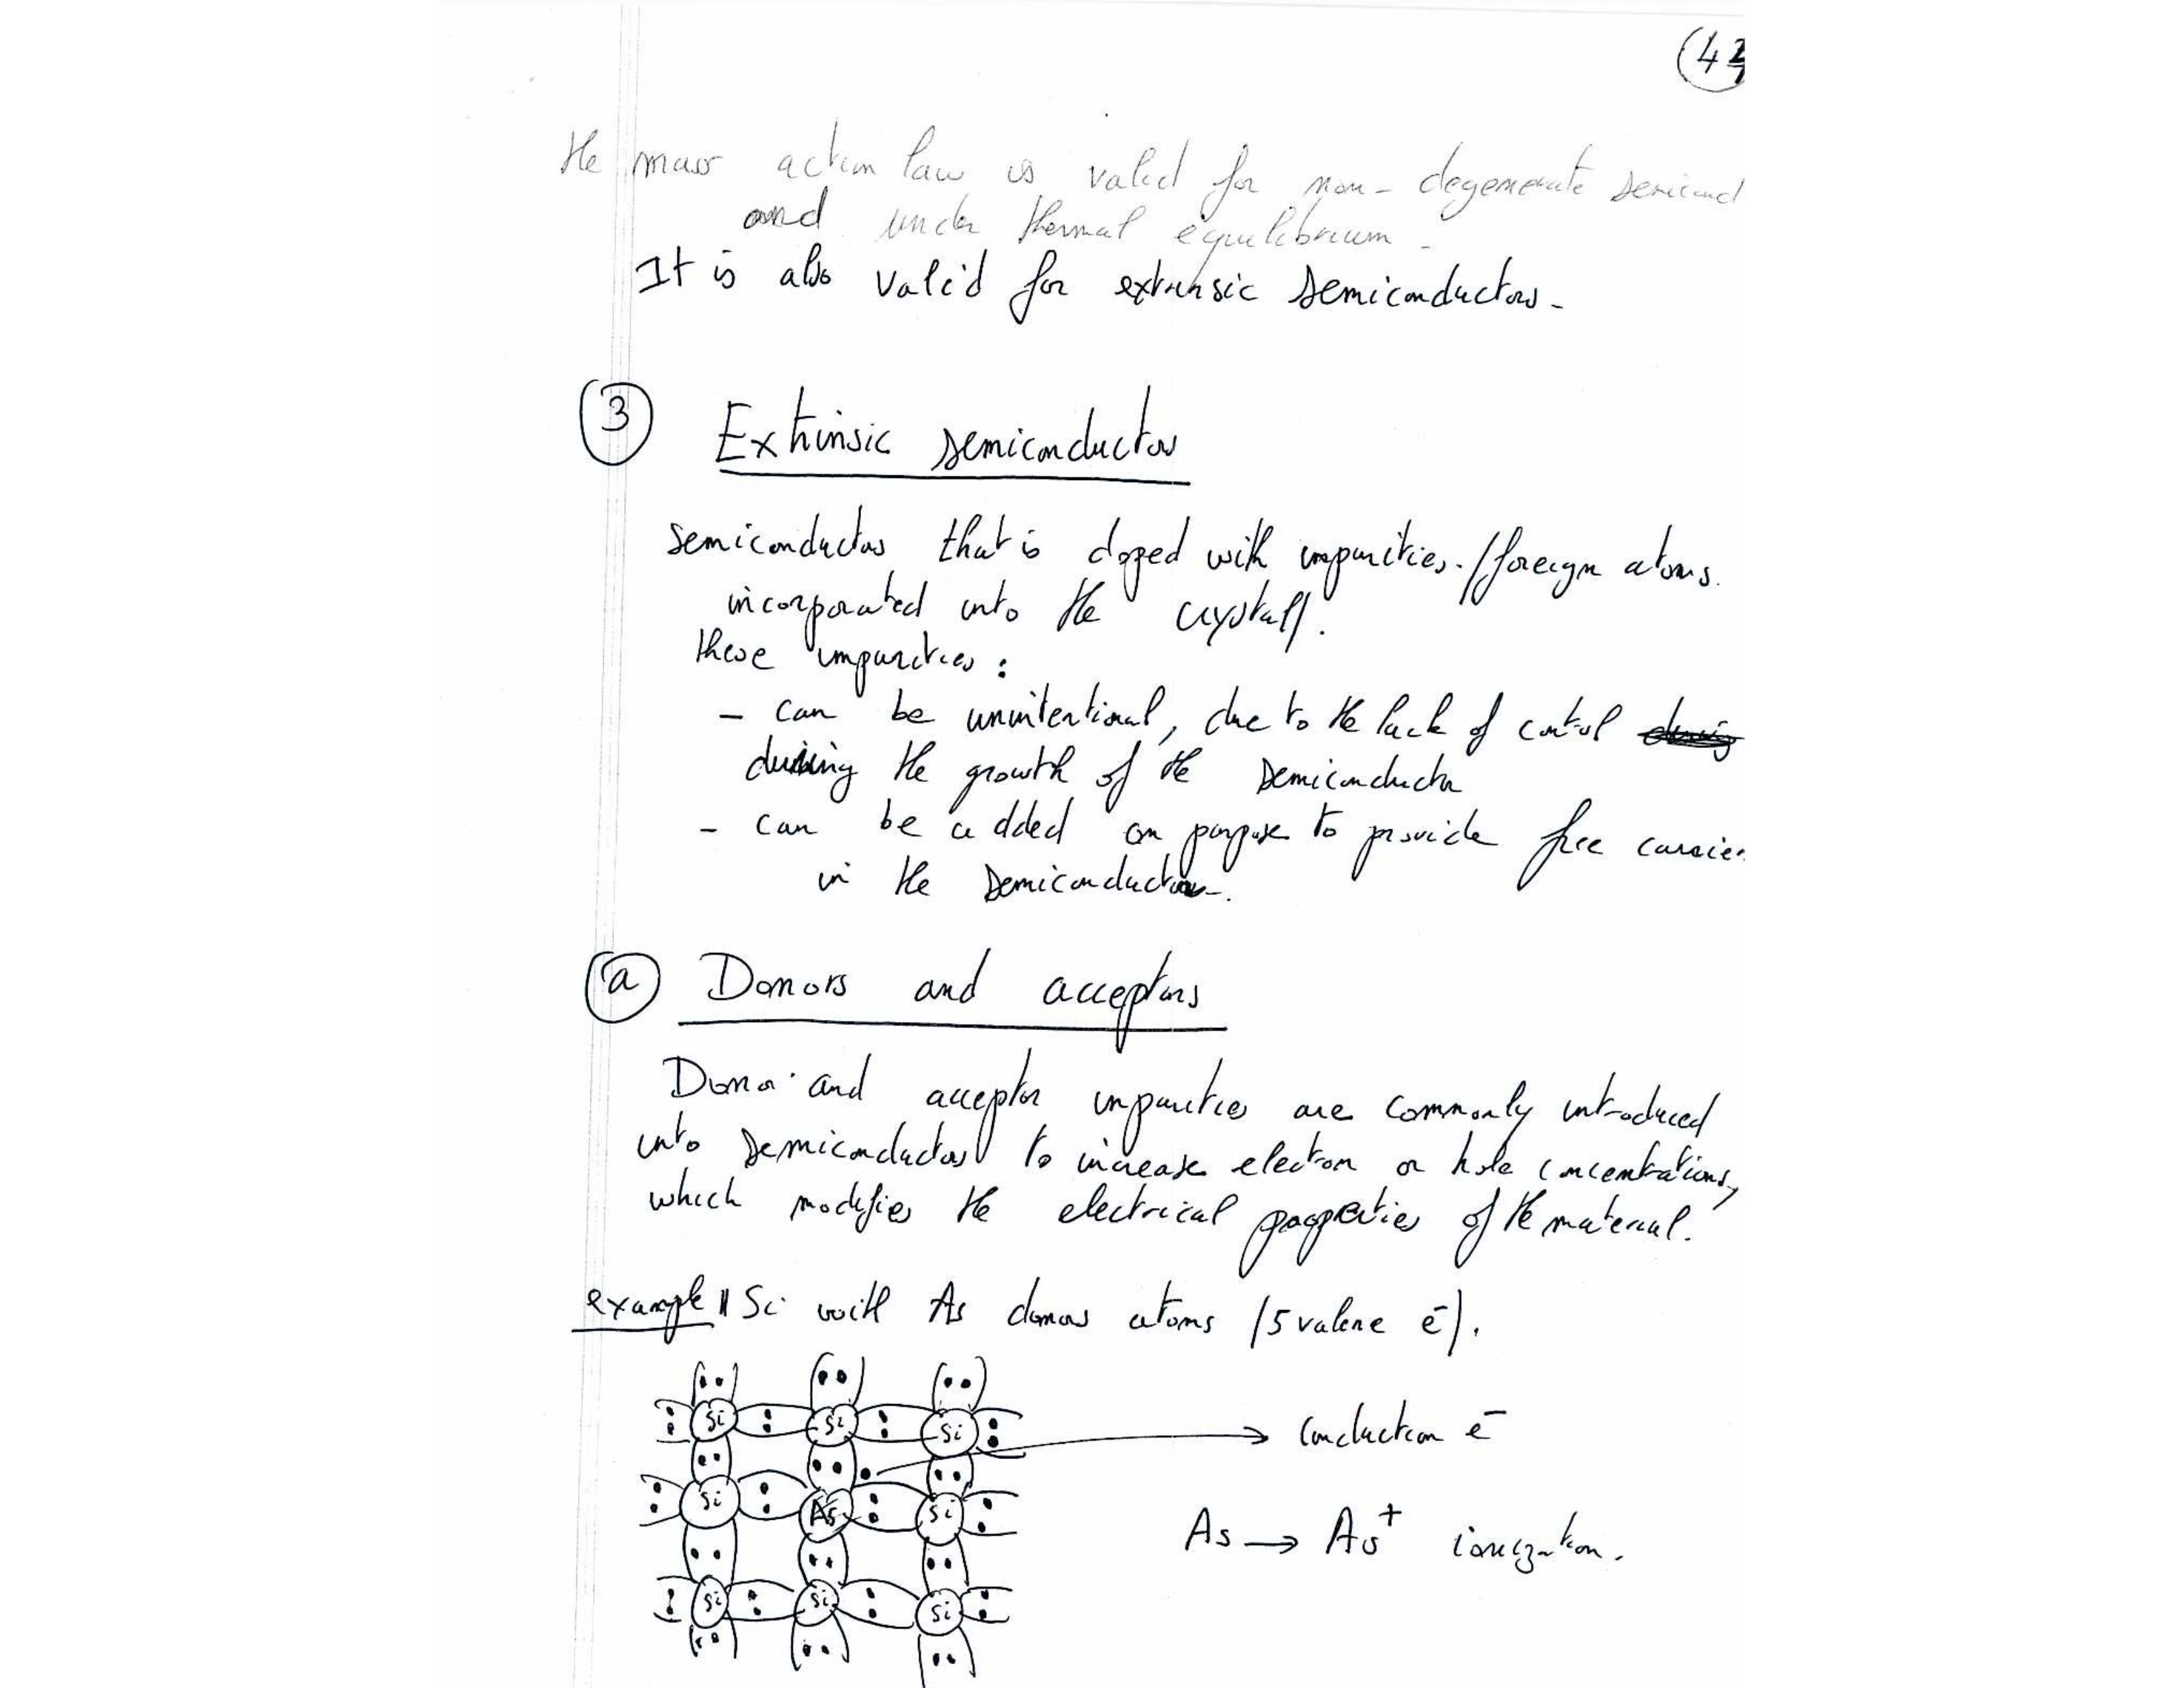 (42
the mass action law is valid for non-degenerate semicond
and under thermal equilibrium.
It is also valid for extrinsic semiconductors.
3 Extrinsic semiconductors
semiconductors that is doped with impurities. (foreign atoms.
incorporated into the crystal).
these impurities :
- can be unintentional, due to the lack of control
during the growth of the semiconductor
- can be added on purpose to provide free carrier
in the semiconductor.
a Donors and acceptors
Donor and acceptor impurities are commonly introduced
into semiconductors to increase electron or hole concentrations,
which modifies the electrical properties of the material.
example || Si with As donors atoms (5 valence e-).
Si Si Si
conduction e-
Si As Si
As → As+ ionization.
Si Si Si